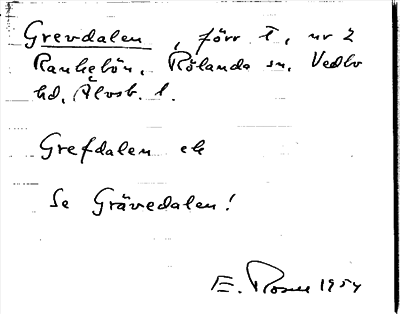 Grevdalen, förr t, nr 2
Rankebön, Rölanda sn, Vedbo
hd, Älvsb. l.
Grefdalen ek
Se Grävedalen!
E. Rosell 1954